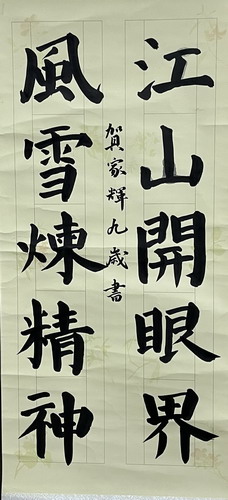 江山開眼界
風雪煉精神
賀家輝九歲書